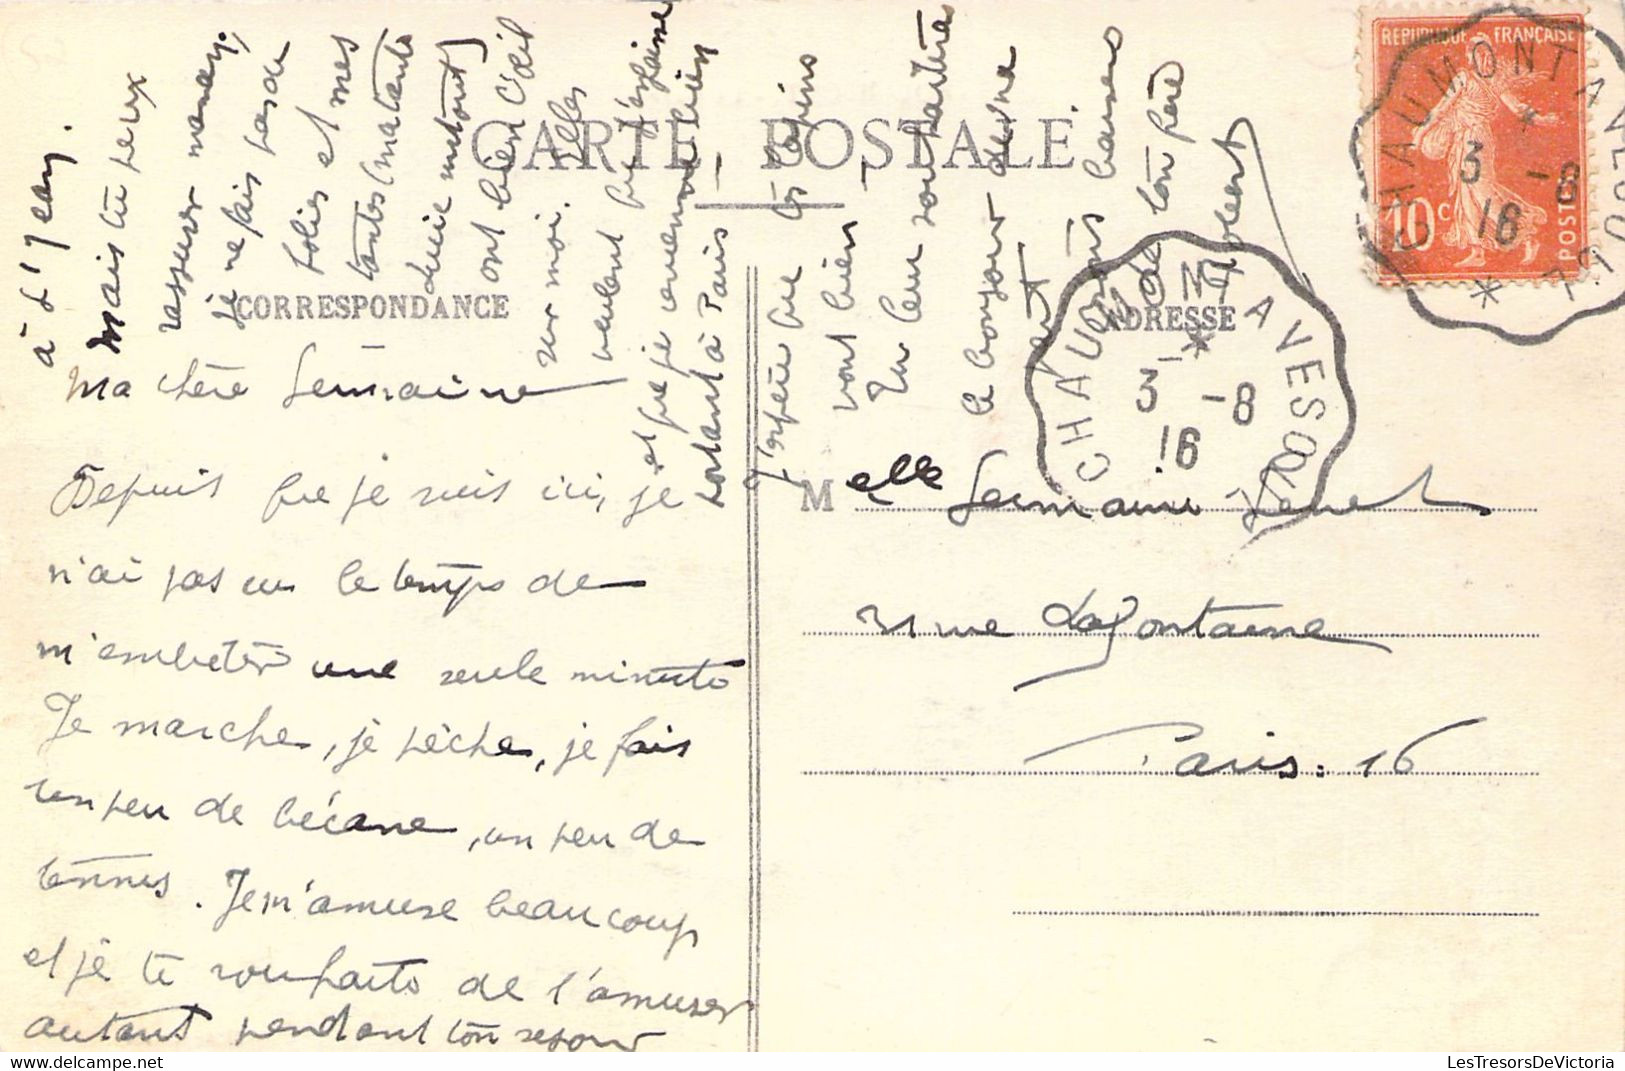 CARTE POSTALE
CORRESPONDANCE
ADRESSE
REPUBLIQUE FRANÇAISE
10c
POSTES
CHAUMONT A VESOUL
3 -8
16
CHAUMONT A VESOUL
3 -8
16
Ma chère Germaine
Depuis que je suis ici, je
n'ai pas eu le temps de
m'embêter une seule minute
Je marche, je pêche, je fais
un peu de bécane, un peu de
tennis. Je m'amuse beaucoup
et je te souhaite de t'amuser
autant pendant ton séjour
à d'Jean.
Mais tu peux
rassurer maman,
je ne fais pas de
folies et mes
tantes (ma tante
surtout)
ont bien l'œil
sur moi. Elles
veulent que j'engraisse
et que je revienne bien
portant à Paris
J'espère que les lapins
vont bien.
Tu leur souhaiteras
le bonjour de ma
part.
bons baisers
de ton père
Robert
Melle Germaine
rue Lafontaine
Paris. 16
LesTresorsDeVictoria